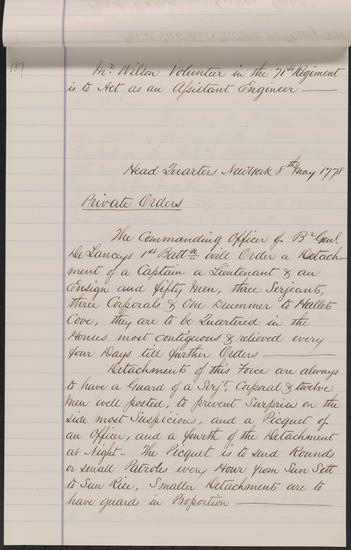 137
Mr. Wilson Volunteer in the 71st Regiment
is to Act as an Assistant Engineer
Head Quarters New York 8th May 1778
Private Orders
The Commanding Officer of Br Genl.
De Lanceys 1st Battn. will Order a Detach-
ment of a Captain a Lieutenant & an
Ensign and fifty Men, three Serjeants,
three Corporals & One Drummer to Hallets
Cove, they are to be Quartered in the
Houses most contigeous & relieved every
four Days till further Orders
Detachments of this Force are always
to have a Guard of a Serjt. Corporal & twelve
Men well posted, to prevent Surprise on the
side most Suspicious, and a Picquet of
an Officer, and a fourth of the Detachment
at Night- The Picquet is to send Rounds
or small Patroles every Hour from Sun Sett
to Sun Rise, Smaller Detachments are to
have guard in Proportion